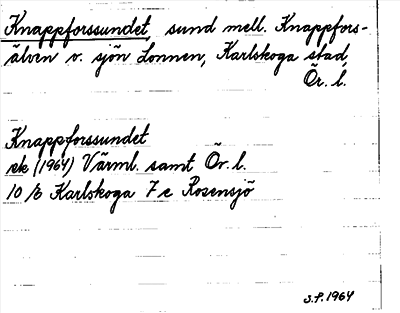 Knappforssundet, sund mell. Knappfors-
älven o. sjön Lonnen, Karlskoga stad,
Ör. l.
Knappforssundet
ek (1964) Värml. samt Ör. l.
10/6 Karlskoga 7 e Rosensjö
S.P. 1964